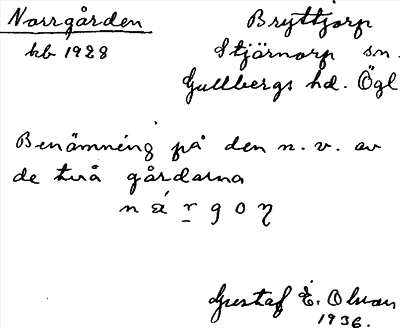 Norrgården
Bryttjorp
kb 1928
Stjärnorp sn.
Gullbergs hd. Ögl
Benämning på den n. v. av
de två gårdarna
ná̈rgoŋ
Gustaf E. Olson
1936.